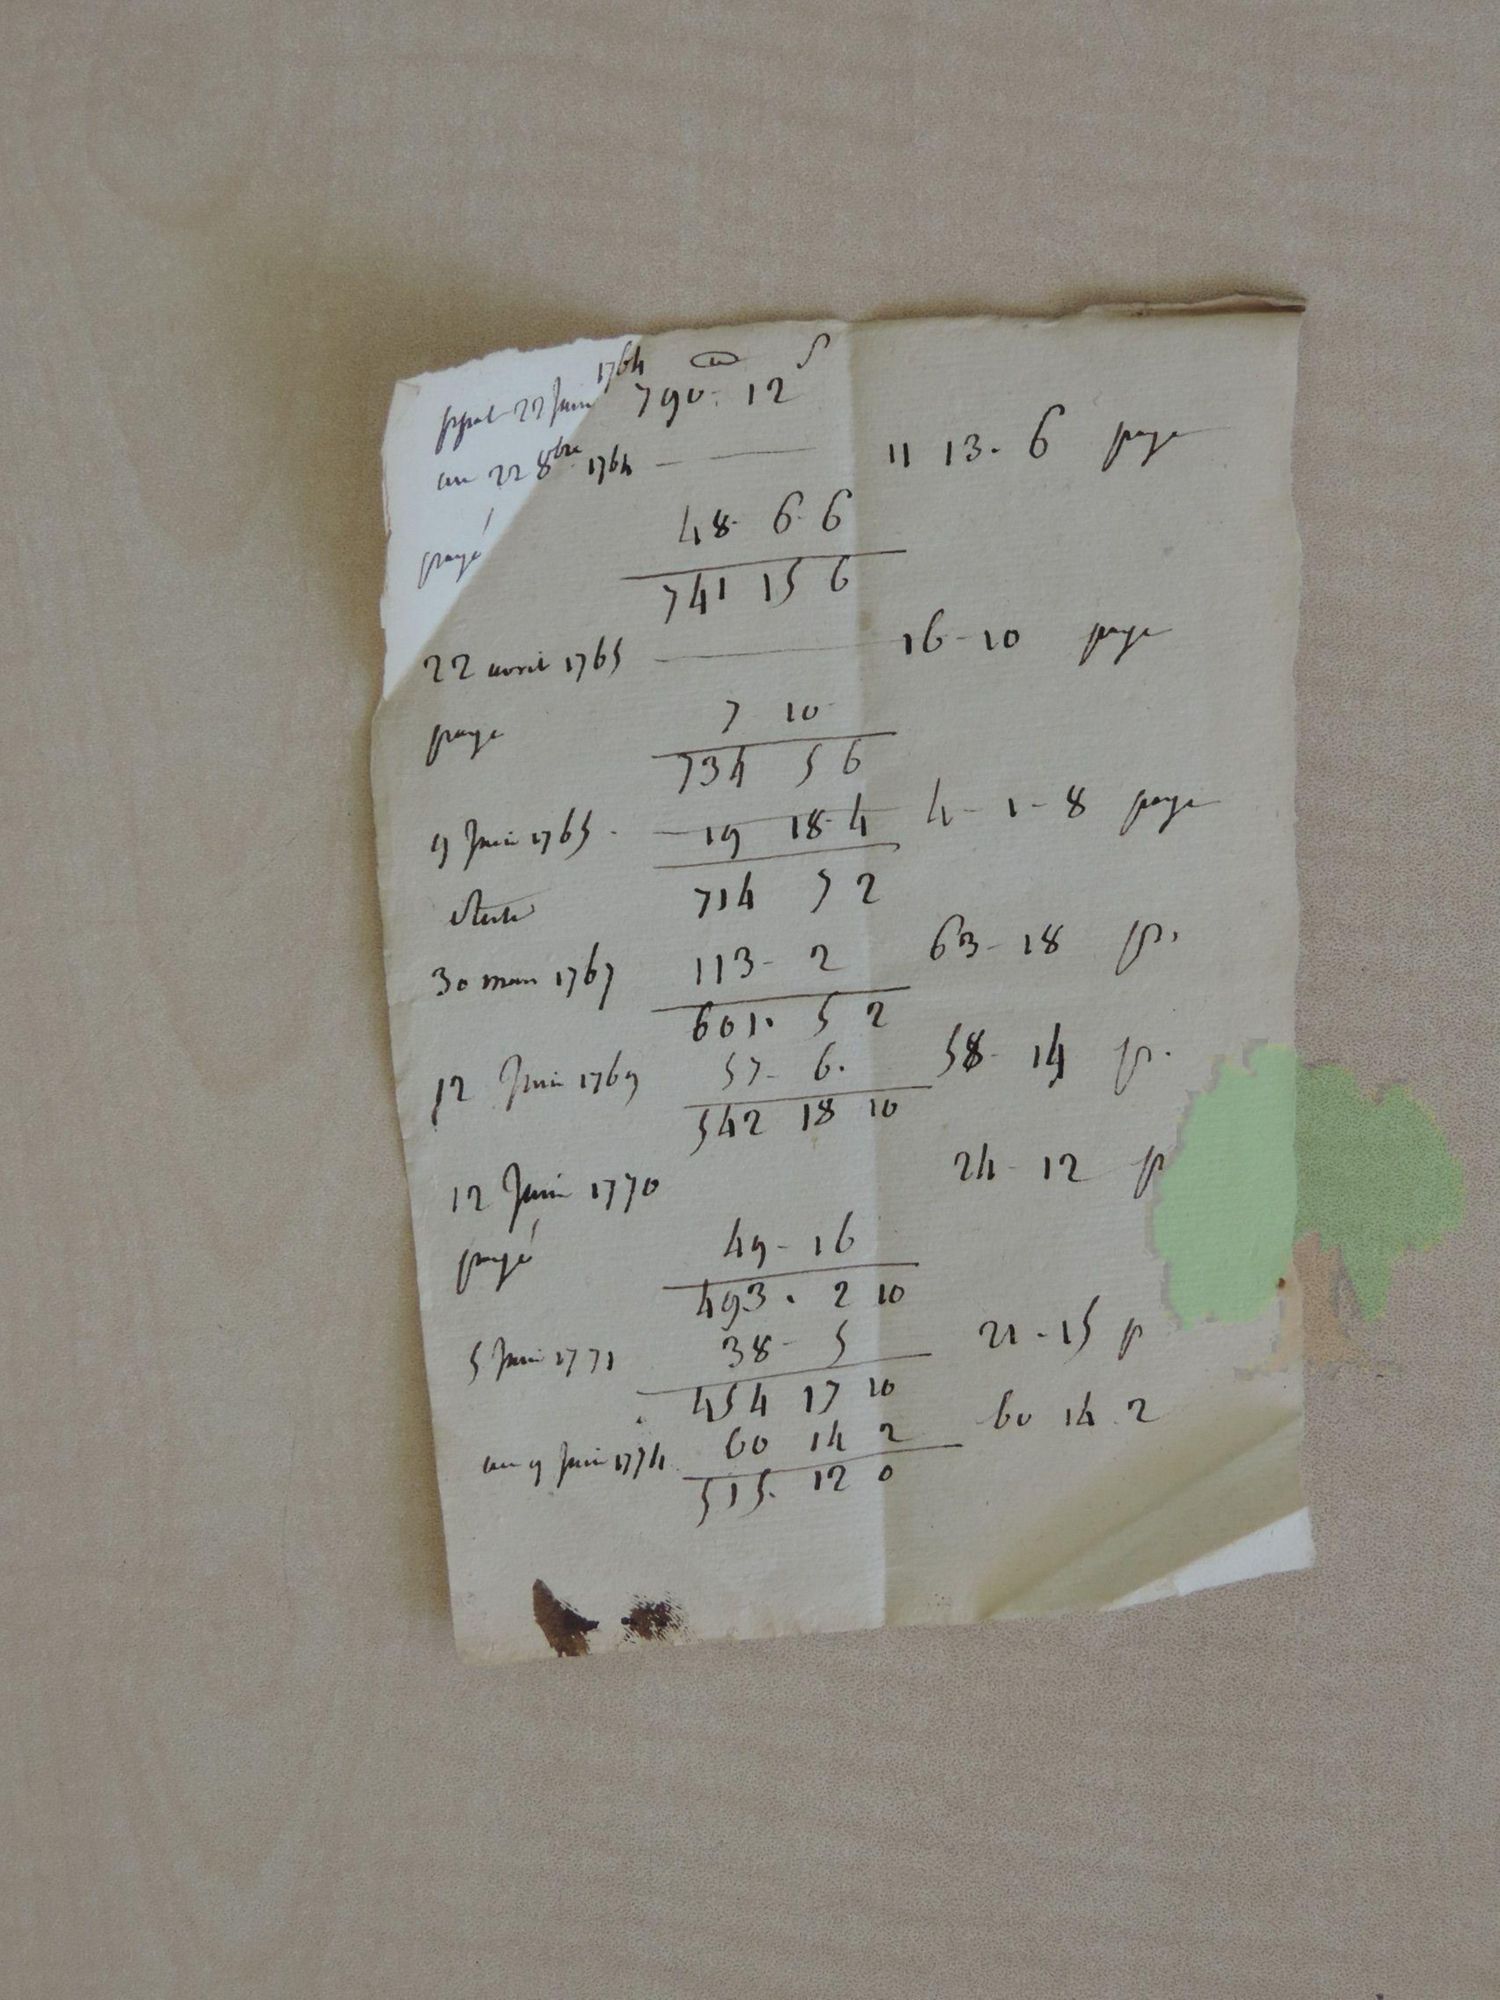 ppal 22 Juin 1764 790 - 12 s
au 22 8bre 1764 — 11 13 - 6 paye
payé 48 - 6 - 6
741 15 6
22 avril 1765 — 16 - 10 paye
paye 7 10
734 5 6
9 Juin 1765 - 19 18 - 4 4 - 1 - 8 paye
reste 714 5 2
30 mars 1767 113 - 2 63 - 18 p.
601 . 5 2
12 Juin 1769 57 - 6 . 58 - 14 p.
542 18 10
12 Juin 1770 24 - 12 p
payé 49 - 16
493 . 2 10
5 Juin 1771 38 - 5 21 - 15 p
454 17 10
au 9 Juin 1774 60 14 2 60 14 2
515 . 12 0